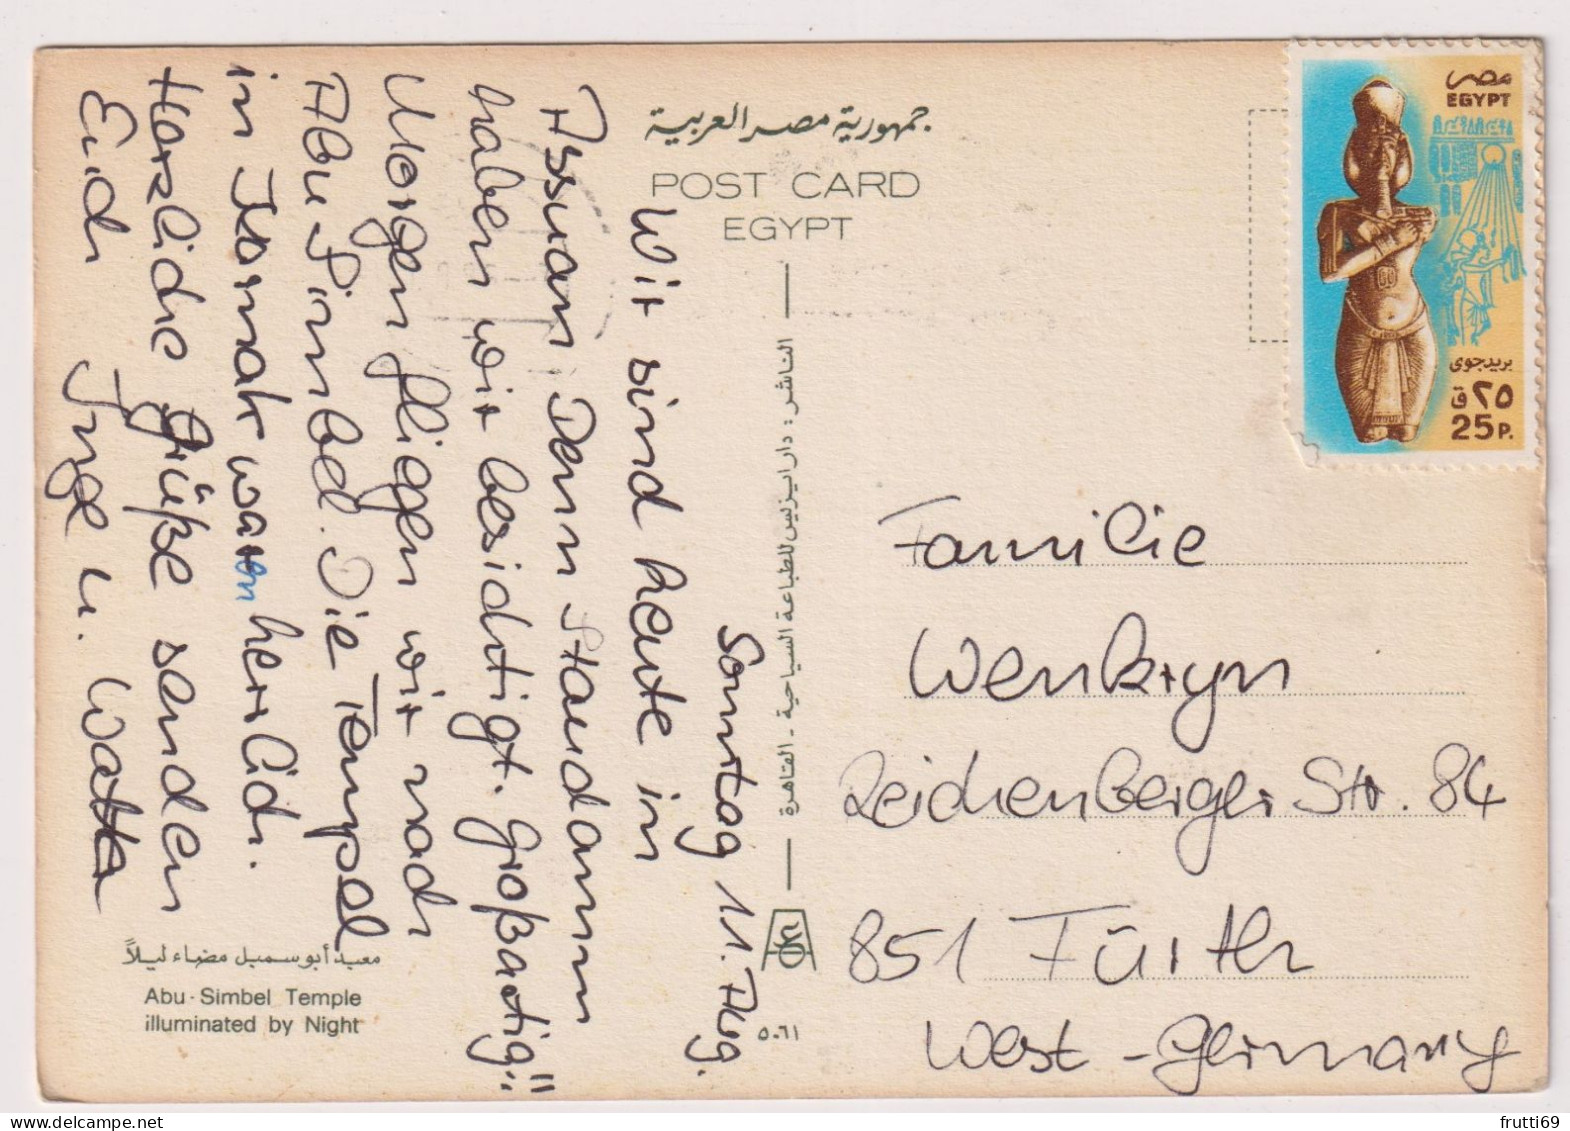 جمهورية مصر العربية
POST CARD
EGYPT
مصر
EGYPT
بريد جوى
٢٥ ق
25 P.
Sonntag 11. Aug.
Wir sind heute in
Assuan Denn Staudamm
haben wir besichtigt. "Großartig"
Morgen fliegen wir nach
Abu Simbel. Die Tempel
in Karnak waren herrlich.
Herzliche Grüße senden
Euch Inge u. Walter
الناشر : دار ايزيس للطباعة السياحية - القاهرة
Familie
Wenkryn
Reichenberger Str. 84
851 Fürth
West-Germany
معبد أبو سمبل مضاء ليلاً
Abu-Simbel Temple
illuminated by Night
٥٠٦١
frutti69